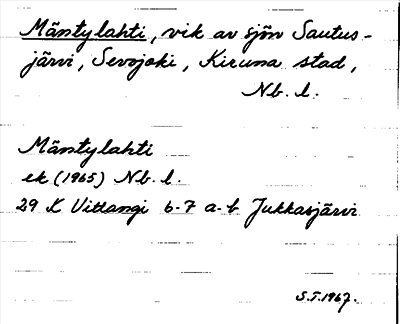 Mäntylahti, vik av sjön Sautus-
järvi, Sevojoki, Kiruna stad,
Nb. l.
Mäntylahti
ek (1965) Nb. l.
29 K Vittangi 6-7 a-b Jukkasjärvi
S.T. 1967.